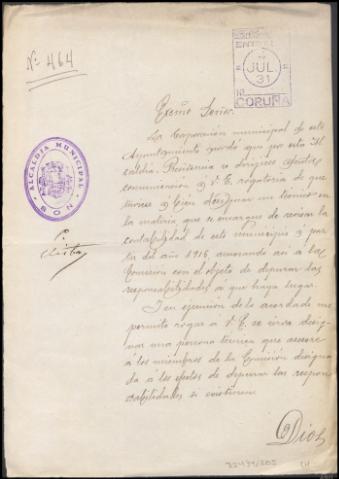 Nº 464
ENTR
JUL
31
CORUÑA
ALCALDIA MUNICIPAL
NOYA
Excmo Señor.
La Corporación municipal de este
Ayuntamiento acordó que por esta Al-
caldia Presidencia se dirigiese atenta
comunicación á V.E. rogatoria de que
tuviese á bien designar un técnico en
la materia que se encargue de revisar la
contabilidad de este municipio á par-
tir del año 1916, asesorando así a la
Comision con el objeto de depurar las
responsabilidades á que haya lugar.
Y en ejecución de lo acordado me
permito rogar a V.E. se sirva desig-
nar una persona técnica que asesore
á los miembros de la Comisión designa-
da á los efectos de depurar las respon-
sabilidades si existieren
Dios